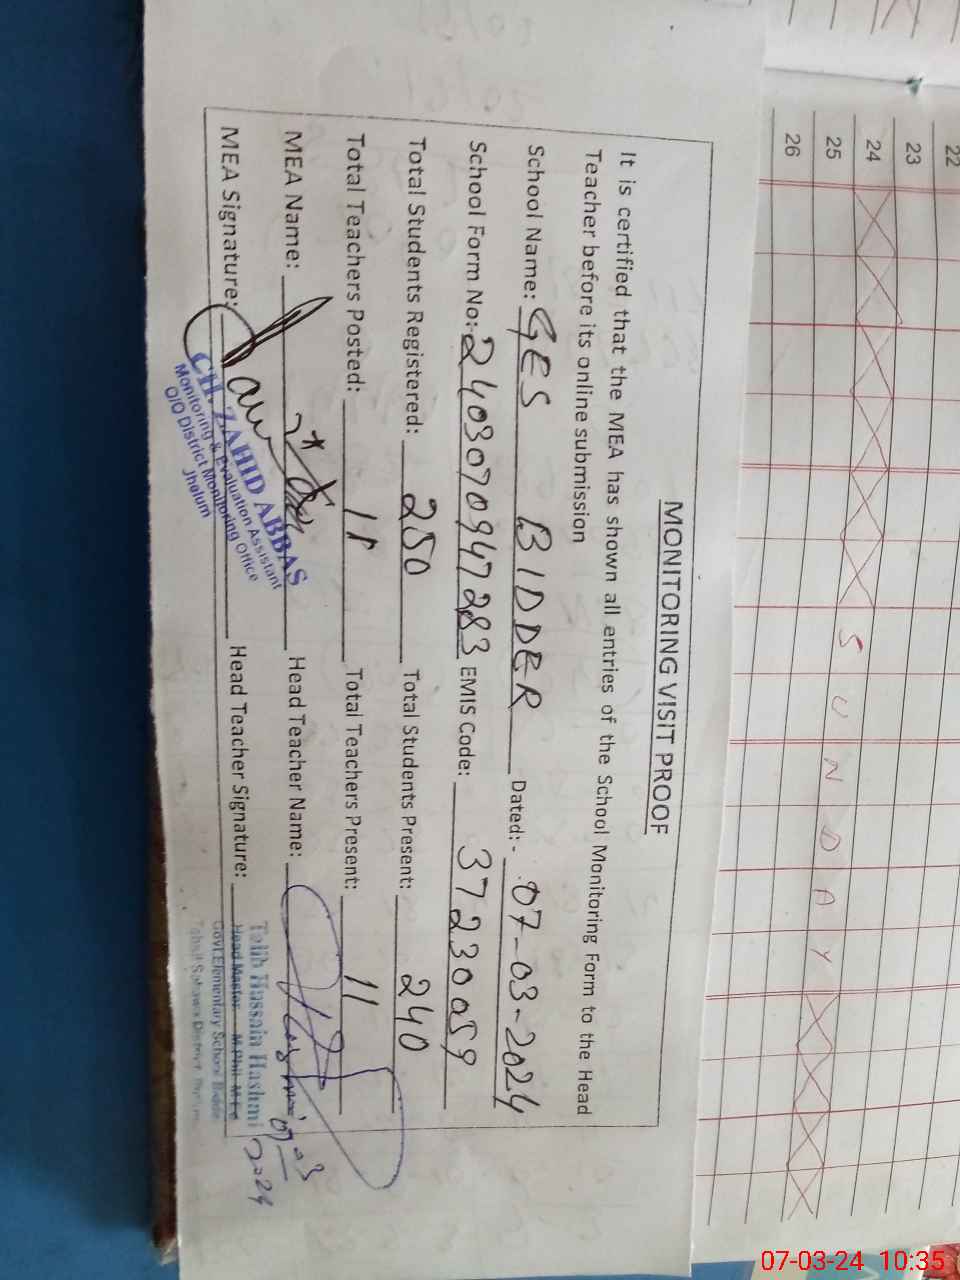 22
23
24
25
26
S U N D A Y
MONITORING VISIT PROOF
It is certified that the MEA has shown all entries of the School Monitoring Form to the Head
Teacher before its online submission
School Name: GES BIDDER Dated:- 07-03-2024
School Form No:- 2403070947283 EMIS Code: 37230059
Total Students Registered: 250 Total Students Present: 240
Total Teachers Posted: 11 Total Teachers Present: 11
MEA Name: Head Teacher Name:
MEA Signature: Head Teacher Signature:
CH. ZAHID ABBAS
Monitoring & Evaluation Assistant
O/O District Monitoring Office
Jhelum
Talib Hussain Hashmi
Head Master M.Phil M.Ed
Govt.Elementary School Bidder
Tehsil Sohawa District
07-03
2024
07-03-24 10:35